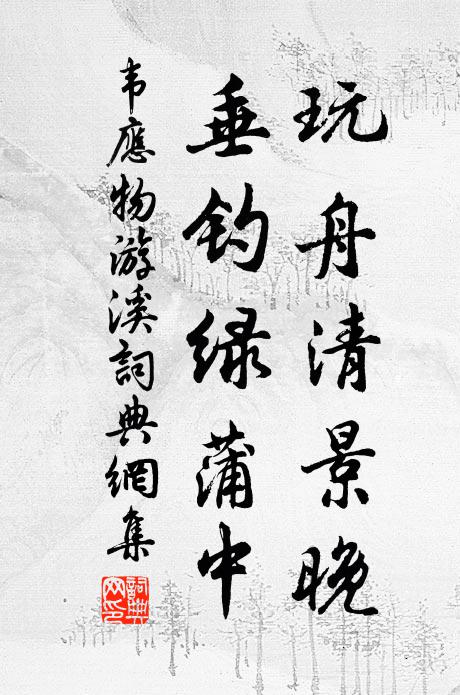 玩舟清景晚
垂钓绿蒲中
韦應物游溪詞典網集
詞典網印